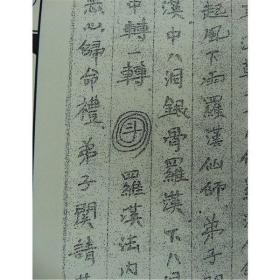 起風下雨羅漢仙師 弟子
漢中八洞銀骨羅漢下八洞
中轉一轉 斗 羅漢法內
志心歸命禮 弟子関請